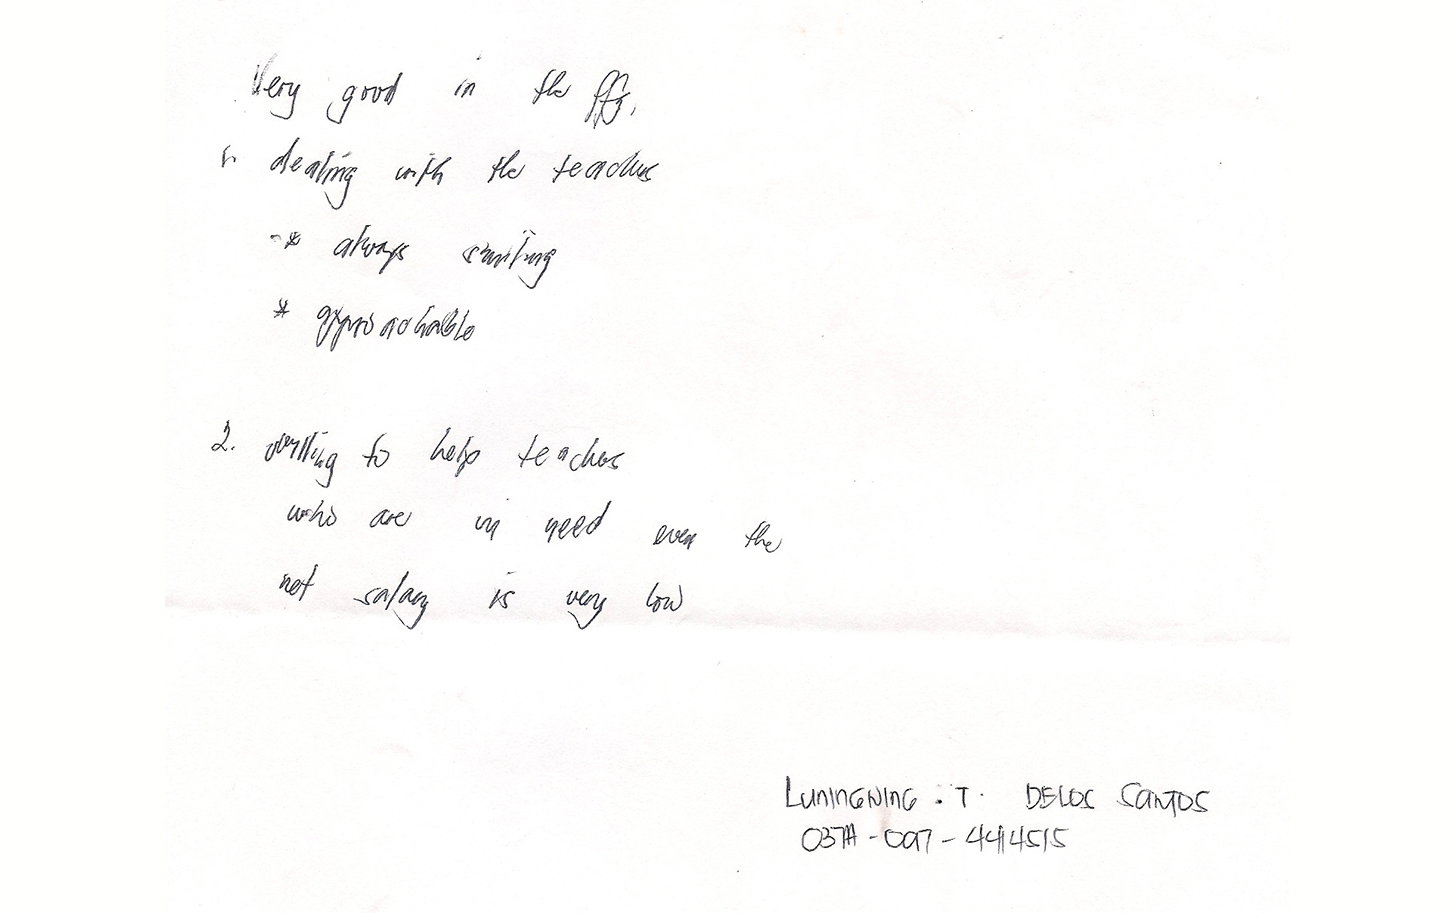 Very good in the ffg,
1. dealing with the teachers
* always smiling
* approachable
2. willing to help teachers
who are in need even the
net salary is very low
LUNINGNING . T. DELOS SANTOS